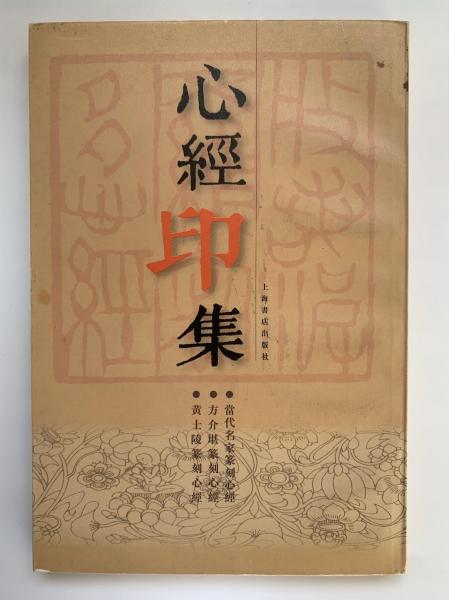 心經印集
上海書店出版社
當代名家篆刻心經
方介堪篆刻心經
黃士陵篆刻心經